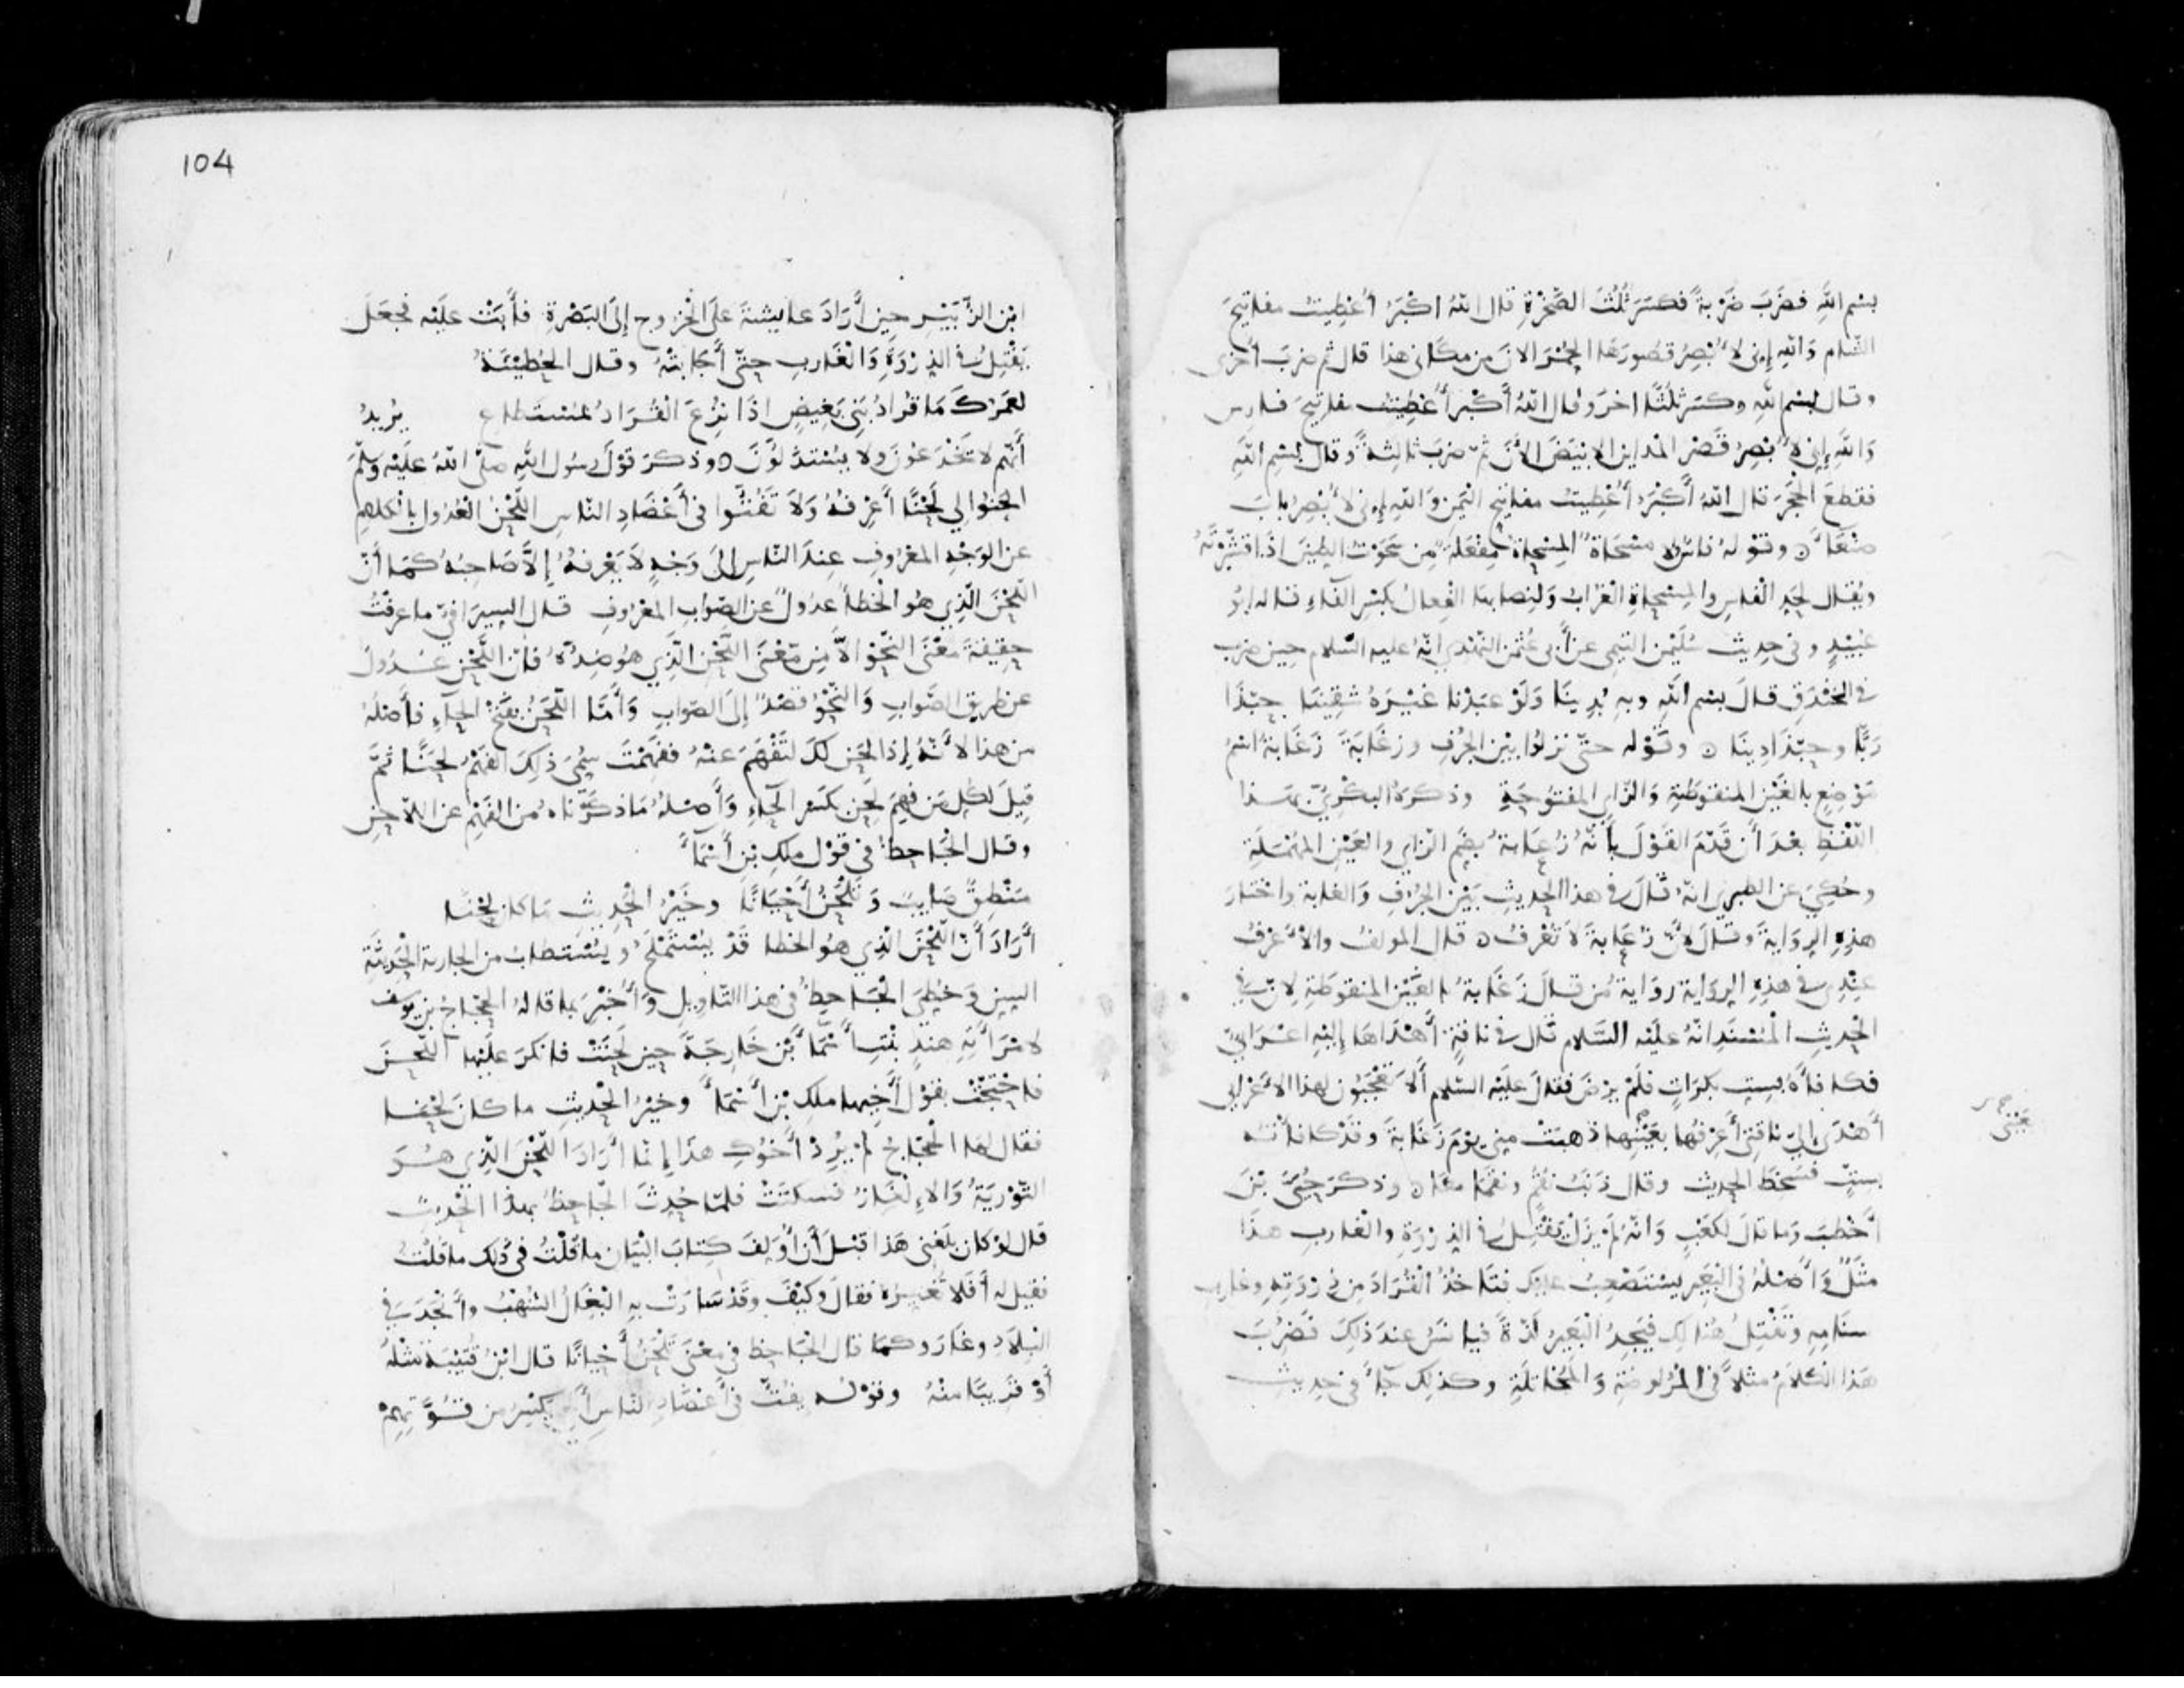 بسْم اللهِ فضَربَ ضَرْبةً فكسَرَ ثُلُثَ الصَّخْرَةِ قال اللهُ اكْبَرُ أُعْطِيتُ مفاتيحَ
الشّام وَاللهِ إِنى لَأُبْصِرُ قصُورَهَا الحُمْرَ الانَ من مكَانى هذا قال ثم ضربَ أخرى
وقال بسْم اللهِ وكسَرَ ثلُثًا اخرَ وقال اللهُ أكْبر أُعْطِيتُ مفاتيحَ فارس
وَاللهِ إنى لَأُبْصِرُ قَصْرَ المْداين الابْيَضَ الأنَ ثمّ ضربَ ثالِثةً وقال بسْمِ اللهِ
فقطعَ الحجَرَ قال اللهُ أكْبَرُ أُعْطِيتُ مفاتيح اليَمَن وَاللهِ إنى لأبْصِرُ بابَ
صنْعَاءَ ن وقوْله مسْحَاة المِسْحاةُ مِفْعَلَة من سَحَوْتُ الطينَ اذا قشَّرْتَهُ
ويُقال لحدِ الفاسِ والمِسْحاةِ الغُرَابُ وَلنِصابهَا الفِعالُ بكسْرِ الفاءِ قاله ابُو
عُبَيْدٍ وفى حديث سُلَيْمن التيمى عن أبى عُثْمن النّهْدى انّهُ عليه السّلام حين ضرب
فى الخنْدَقِ قالَ بسْم اللهِ وبهِ بُدِينَا وَلَوْ عبَدْنا غَيْرَهُ شقِينَا حبّذا
رَبًّا وحبّذا دِينَا ن وقَوْله حتّى نزلُوا بيْن الجُرُفِ وزغَابَةَ زَغَابة اسْمُ
مَوْضِعٍ بالغَيْن المنقوطةِ وَالزّاىِ المفتُوحَةِ وذكرهُ البكْرِىُّ بهَذا
اللّفْظِ بعْدَ أن قَدّمَ القَوْلَ بأنّهُ زُعَابة بضمِ الزّاىِ والعَيْنِ المهْمَلَةِ
وحُكِىَ عن الطبرى انّهُ قالَ فى هذا الحديثِ بَيْنَ الجُرُفِ وَالغابة واخْتارَ
هذِهِ الرِّوَايةَ وقالَ لأنّ زُعَابةَ لاَ تُعْرَفُ ن قال المولفُ والأعْرَفُ
عِنْدِى فى هذِهِ الرِّوَاية رِوَايةُ مَن قالَ زَغَابةُ بالغَيْن المنقوطَةِ لانّ فى
الحَدِيثِ الْمُسْنَدِ انّهُ علَيْه السَّلام قال فى ناقةٍ أهْدَاهَا إليْهِ اعْرَابىٌّ
فكافأهُ بسِتِ بكرَاتٍ فلَمْ يرْضَ فقالَ علَيْه السّلام ألاَ تعْجَبُون لهذا الأعْرابى
أهْدَى إلىّ ناقتى أعْرِفُها بعَيْنِها ذهبَتْ مِنى يوْمَ زغَابةَ وقَدْ كافأته
عَيْنى
بستٍّ فسخطَ الحديث وقال ذنَبُ نقُمٍ ونَقَمَا معًا ن وذكرَ حُيَىَّ بْنَ
أخْطبَ وَما قالَ لكعْبٍ وَانّهُ لَمْ يزَلْ يفْتِلُ فى الذِرْوَةِ والغارِب هذَا
مثَلٌ وَأصْلُهُ فى البَعِيرِ يستَصْعِبُ عليْك فتَاخذُ القُرَادَ مِن ذِرْوَتِهِ وغارِب
سنَامِهِ وتَفْتِلُ هُنالِك فيَجِدُ البَعِيرُ لَذّةً فيانسُ عندَ ذلِكَ فضُرِبَ
هَذا الكلامُ مثلاً فى المُراوضةِ وَالمُخاتلَةِ وكذلِك جآءَ فى حدِيثِ
104
ابْن الزُّبَيْرِ حين أرَادَ عايشةَ علَى الخُرُوج إلى البَصْرَةِ فأبَتْ علَيْه فجعَلَ
يَفْتِلُ فى الذِرْوَةِ وَالغَاربِ حتّى أجَابَتْهُ وقال الحُطيْئَةُ
لعَمْرُكَ مَا قُرَادُ بَنِى بَغِيضٍ اذَا نُزِعَ القُرَادُ بمُسْتَطاعِ يُرِيدُ
أنّهم لا يُخْدَعُونَ ولا يُسْتذَلُّونَ ن وذكرَ قوْلَ رسُولِ اللهِ صلّى اللهُ علَيْه وَسلّمَ
الحنُوا لِى لَحْنًا أعْرِفُهُ وَلاَ تَفُتُّوا فى أَعْضَادِ النّاسِ اللّحْنُ العُدُول بالْكلامِ
عن الوَجْهِ المعْرُوفِ عندَ النّاس إلَى وَجْهٍ لاَ يَعْرِفُهُ إلاَّ صَاحِبُهُ كمَا أنّ
اللّحْنَ الّذِى هُو الْخطأُ عدُولٌ عن الصّوَابِ المعْرُوفِ قال السِيرَافىّ ما عرفْتُ
حقِيقةَ مَعْنَى النّحْوِ الاّ مِن مَعْنَى اللّحْنِ الّذِى هُو ضِدُّهُ فإنّ اللّحْن عُدُولٌ
عن طريقِ الصَّوابِ وَالنّحْوُ قصْدٌ إلى الصَّوابِ وَأمّا اللّحَنُ بفَتْحِ الحآءِ فأصْلُهُ
من هذا لأنّهُ إذا لحَن لكَ لتَفْهَمَ عنْهُ ففَهِمْتَ سُمِىَ ذلِكَ الفَهْمُ لحَنًا ثُمّ
قِيلَ لكلِ مَن فهِمَ لحِن بكسْرِ الحآءِ وَأصْلُهُ مَا ذكرْنَاهُ من الفَهْمِ عن اللاّحِنِ
وقال الجَاحظُ فى قوْلِ ملكِ بْنِ أسْمَآءَ
مَنْطِقٌ صَايبٌ وَتَلْحَنُ أَحْيَانًا وخَيْرُ الحَدِيثِ مَا كان لحْنَا
أرَادَ أَنّ اللّحْنَ الّذِى هُو الخطا قَدْ يُسْتَمْلَحُ ويُسْتطابُ من الجارية الحَدِيثَةِ
السِنِ وَخُطِىَ الْجَاحِظُ فى هذا التّاوِيلِ وَأُخْبِرَ بما قالهُ الحجّاجُ بن يوسف
لامْرَأتِهِ هنْدٍ بنْتِ أسْمَآءَ بْن خَارِجَةَ حين لَحَنَتْ فانكرَ علَيْها اللّحْنَ
فاحْتجّتْ بقوْلِ أخِيها ملكِ بْن أسْمَآءَ وخيْرُ الحَديثِ ما كانَ لحْنا
فقالَ لها الْحَجّاجُ لَمْ يُرِدْ أخُوكِ هذَا إنّما أرَادَ اللّحْنَ الّذِى هُوَ
التَّوْرِيَةُ وَالإِلْغَازُ فسكتَتْ فلمّا حُدِثَ الجَاحظُ بهذا الحَديثِ
قال لوْ كان بلَغَنِى هَذا قبْلَ أن أُؤلِفَ كتابَ البَيَان ما قُلْتُ فى ذلك ما قلْتُ
فقِيلَ له أفلا تُغَيرُهُ فقالَ وكيْفَ وقَدْ سَارَتْ بهِ البِغَالُ الشُّهْبُ وأنْجَدَ فى
البِلادِ وغَارَ وكمَا قال الجَاحظ فى معْنَى تَلْحَنُ أحْيانًا قال ابْنُ قُتَيْبَةَ مثْلَهُ
أوْ قرِيبًا منْهُ وقوْله يفُتُّ فى أعْضَادِ النّاس أى يكْسِرُ من قُوَّتِهِمْ